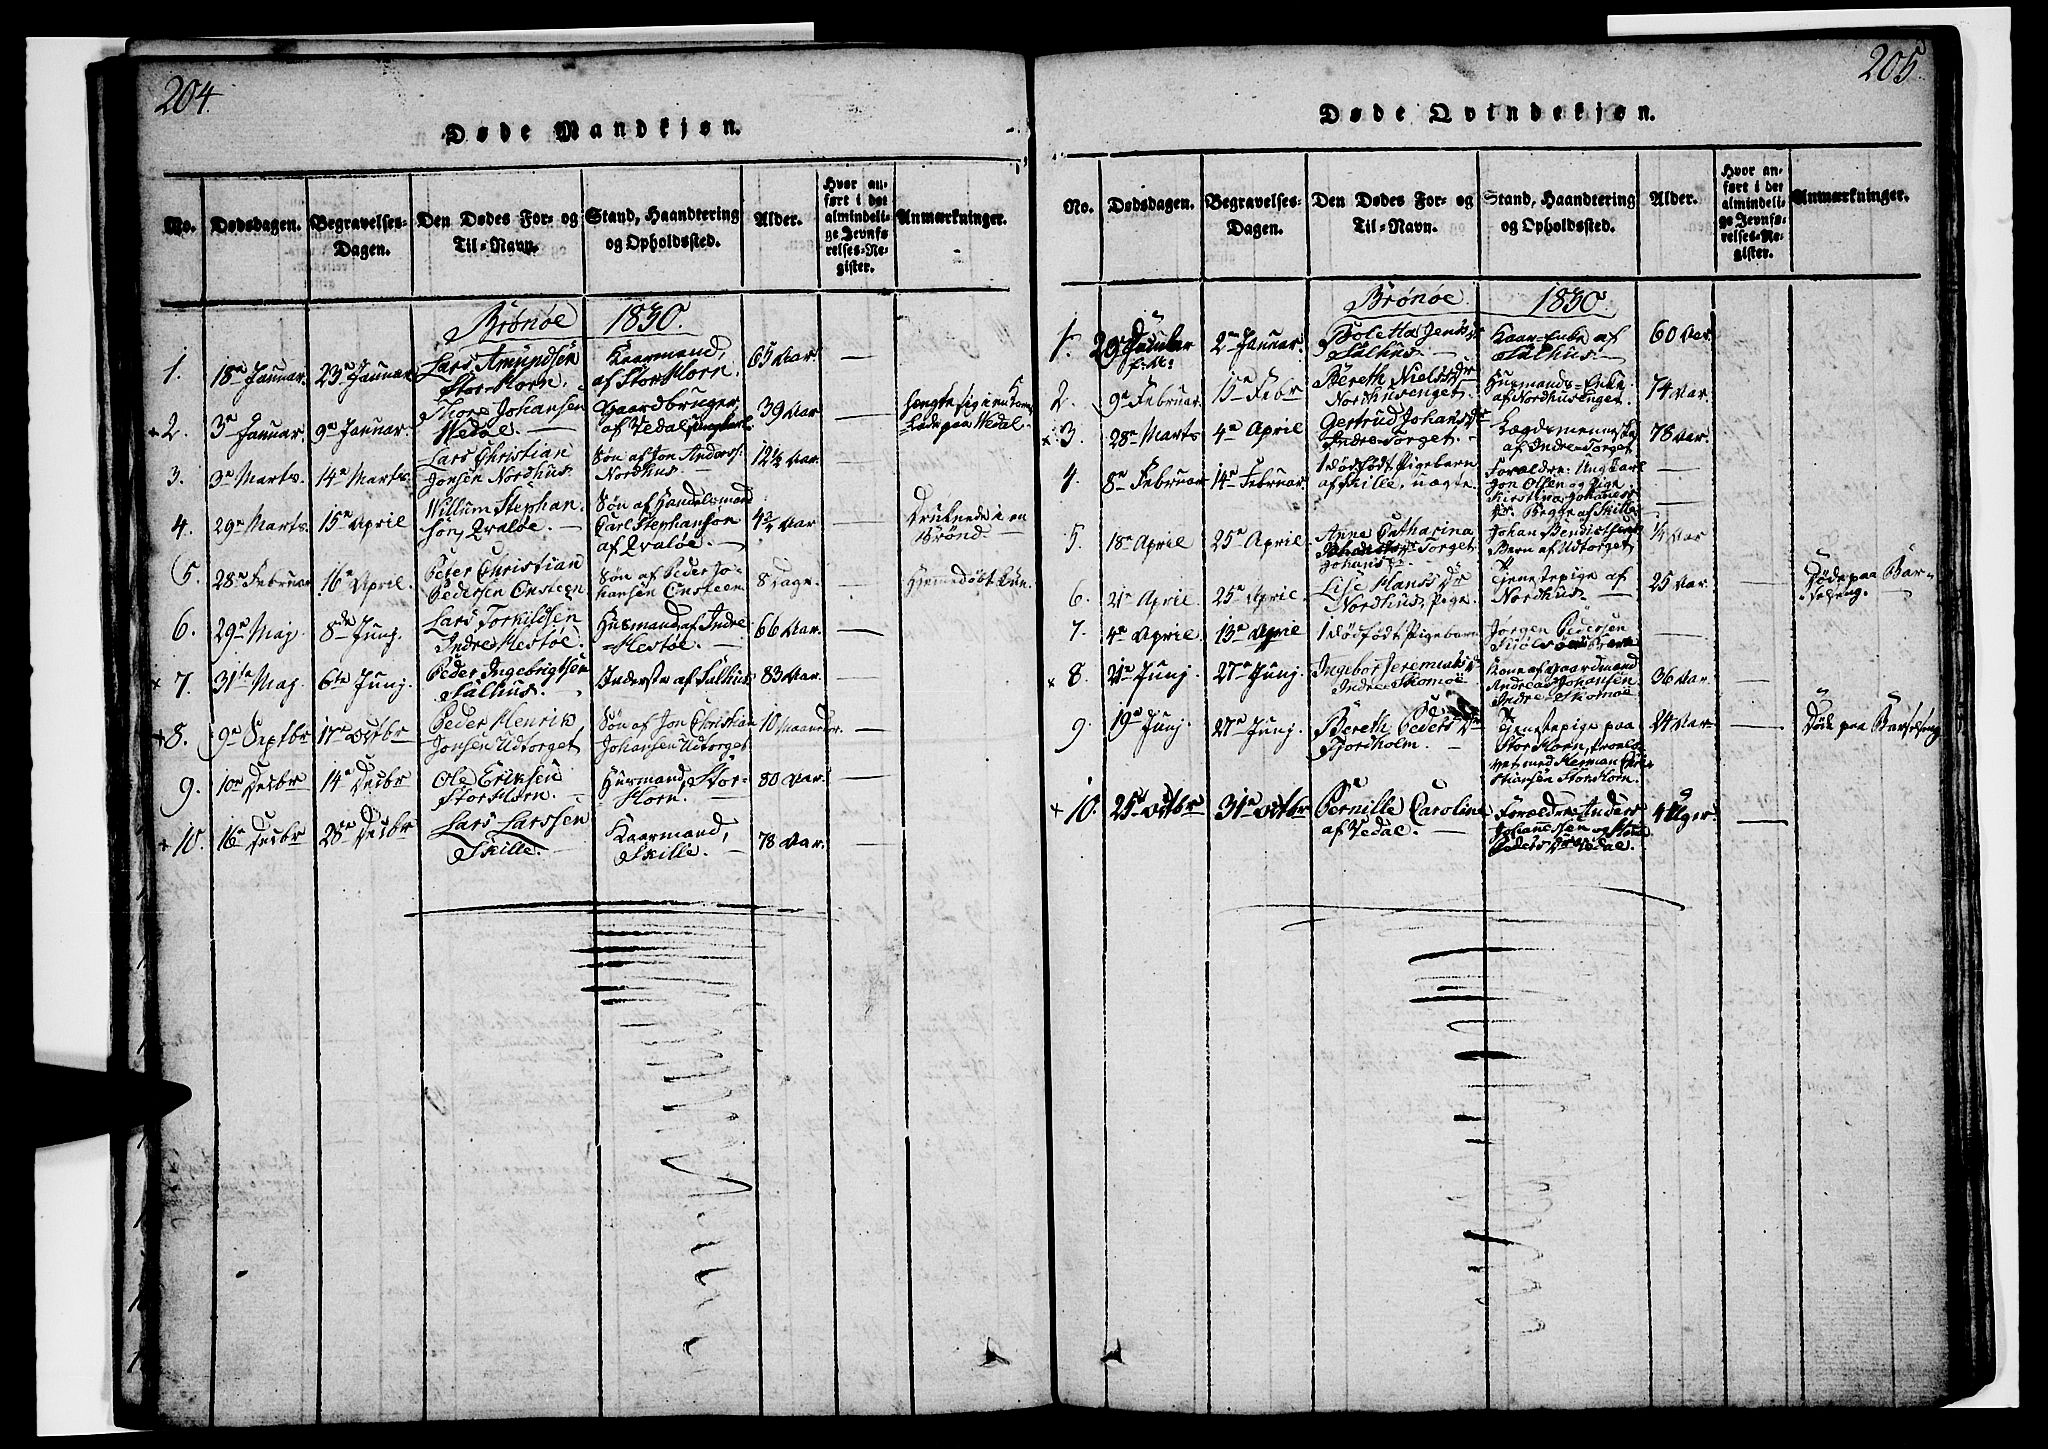 204.
Døde Mandkjøn.
No. Dødsdagen. Begravelses-Dagen. Den Dødes For- og Til-Navn. Stand, Haandtering og Opholdssted. Alder. Hvor anført i det almindelige Jevnførelses-Register. Anmærkninger.
Brønøe 1830.
1. 18de Januar. 23de Januar. Lars Amundsen Stor Horn. Kaarmand, af Stor Horn. 65 Aar. —
2. 3de Januar. 9de Januar. Thore Johansen Wedøe. — Gaardbruger af Vedal 39 Aar — hængte sig i en Lade paa Wedal.
3. 3de Marts. 14de Marts. Lars Christian Jonsen Nordhus. Søn af Jon Anderss. Nordhus. — 12½ Aar. —
4. 29de Marts. 15de April Willum Stephansøn, Qvaløe. — Søn af Handelsmand Carl Stephansøn af Qvaløe. — 4¾ Aar — Druknede i en Brønd. —
5. 28de Februar 16de April. Peter Christian Pedersen Önsteen Søn af Peder Johansen Önsteen 8 Dage. — Hjemmedøbt kun.
6. 29de Maj. 8de Junj. Lars Torkildsen Indre Hestøe. — Husmand af Indre Hestøe. — 66 Aar. —
7. 31te Maj. 6te Junj. Peder Ingebrigtsen Salhus. — Inderste af Salhus. 83 Aar. —
8. 9de Septbr 17de Octbr Peder Henrik Jonsen Udtorget Søn af Jon Christian Johansen Udtorget 10 Maaneder. —
9. 10de Decbr 14de Decbr Ole Eriksen Stor Horn. — Husmand, Stor-Horn. — 80 Aar. —
10. 16de Decbr 28de Decbr Lars Larssen Skille. — Kaarmand, Skille. — 78 Aar. —
205.
Døde Qvindekjøn.
No. Dødsdagen. Begravelses-Dagen. Den Dødes For- og Til-Navn. Stand, Haandtering og Opholdssted. Alder. Hvor anført i det almindelige Jevnførelses-Register. Anmærkninger.
Brønøe 1830.
1. 29de 2den Januar. Boletha Jensdr Salhus. — Kaar-Enke af Salhus. — 60 Aar.
2. 9de Februar. 15de Febr Bereth Nielsdr Nordhusenget. Husmands-Enke af Nordhusenget. 74 Aar.
3. 28de Marts 4de April Gertrud Johansdr Indre Torget. — Lægdslemme af Indre Torget 78 Aar.
4. 8de Februar 14de Februar. 1 Dødfødt Pigebarn af Skille, uægte. Forældre: Ungkarl Jon Olsen og Pige Kirstina Johannesdr. Begge af Skille. —
5. 18de April 25de April Anne Catharina Johansdr Torget Johan Bendictsens Barn af Udtorget ½ Aar
6. 21de April. 25de April. Lise Hansdr Nordhus, Pige. Tjenestepige af Nordhus. — 25 Aar. — Døde paa Barselseng. —
7. 4de April. 13de April 1 Dødfødt Pigebarn Jørgen Pedersen —
8. 21de Junj. 27de Junj. Ingebor Jeremiasdr Indre Skomoe Kone af Gaardmand Andreas Johansen Indre-Skomoe 36 Aar. —
9. 19de Junj. 27de Junj. Bereth Pedersdr Fjordholm. — Tjenestepige paa Stor Horn, trolovet med Herman Christiansen Stor Horn. 24 Aar — Død paa Barselseng
10. 25de Octbr 31te Octbr Pernille Caroline af Vedal. — Forældre Anders Johannessen og Pedersdr Vedal. 4 Uger. —